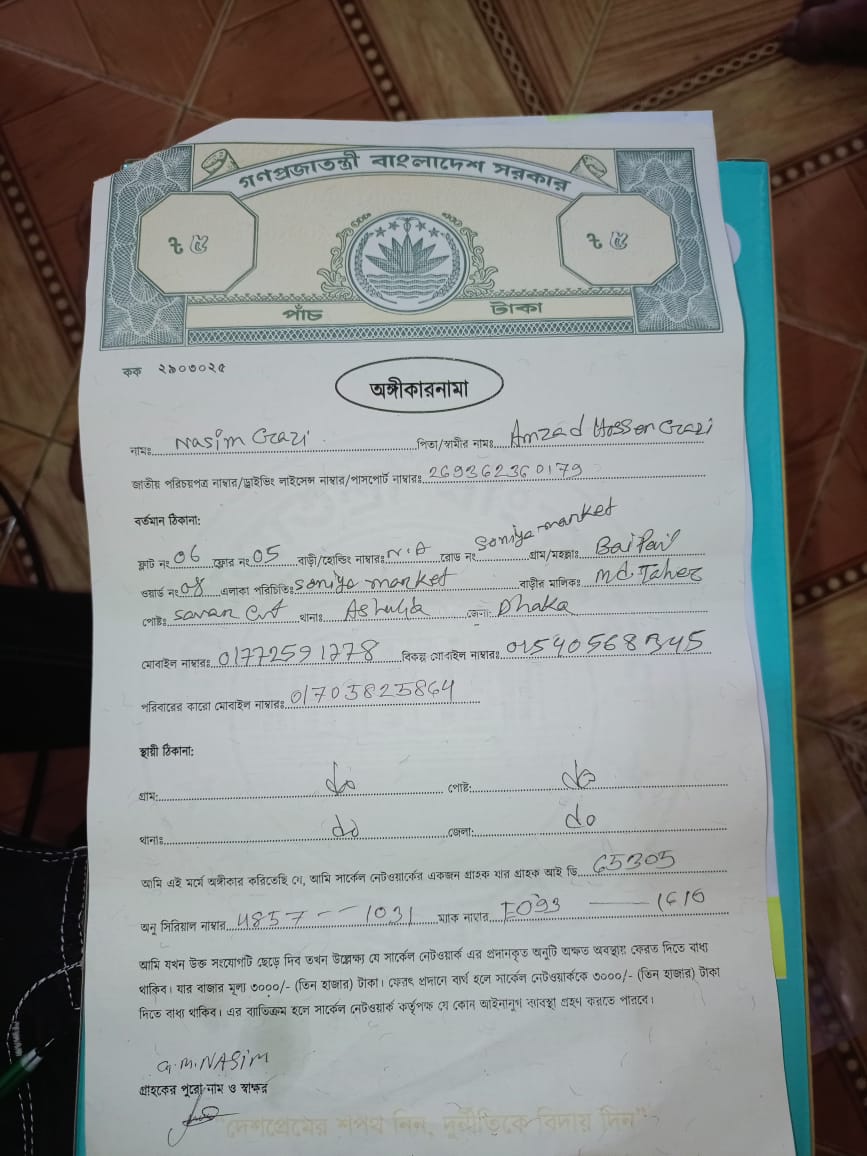 গণপ্রজাতন্ত্রী বাংলাদেশ সরকার
৳ ৫ ৳ ৫
পাঁচ টাকা
কক ২৯০৩০২৫
অঙ্গীকারনামা
নামঃ Nasim Gazi পিতা/স্বামীর নামঃ Amzad Hossen Gazi
জাতীয় পরিচয়পত্র নাম্বার/ড্রাইভিং লাইসেন্স নাম্বার/পাসপোর্ট নাম্বারঃ 269362360179
বর্তমান ঠিকানা:
ফ্লাট নং 06 ফ্লোর নং 05 বাড়ী/হোল্ডিং নাম্বারঃ N.A রোড নং Soniya market গ্রাম/মহল্লাঃ Baipail
ওয়ার্ড নং 08 এলাকা পরিচিতিঃ Soniya market বাড়ীর মালিকঃ Md. Taher
পোষ্টঃ Savar Cnt থানাঃ Ashulia জেলা: Dhaka
মোবাইল নাম্বারঃ 01772591278 বিকল্প মোবাইল নাম্বারঃ 01540568345
পরিবারের কারো মোবাইল নাম্বারঃ 01703825864
স্থায়ী ঠিকানা:
গ্রাম: do পোষ্ট: do
থানাঃ do জেলা: do
আমি এই মর্মে অঙ্গীকার করিতেছি যে, আমি সার্কেল নেটওয়ার্কের একজন গ্রাহক যার গ্রাহক আই ডি 65305
অনু সিরিয়াল নাম্বার 4857 -- 1031 ম্যাক নাম্বার E093 — 1616
আমি যখন উক্ত সংযোগটি ছেড়ে দিব তখন উল্লেক্ষ্য যে সার্কেল নেটওয়ার্ক এর প্রদানকৃত অনুটি অক্ষত অবস্থায় ফেরত দিতে বাধ্য
থাকিব। যার বাজার মূল্য ৩০০০/- (তিন হাজার) টাকা। ফেরৎ প্রদানে ব্যর্থ হলে সার্কেল নেটওয়ার্ককে ৩০০০/- (তিন হাজার) টাকা
দিতে বাধ্য থাকিব। এর ব্যতিক্রম হলে সার্কেল নেটওয়ার্ক কর্তৃপক্ষ যে কোন আইনানুগ ব্যবস্থা গ্রহণ করতে পারবে।
G.M. NASIM
গ্রাহকের পুরো নাম ও স্বাক্ষর
"দেশপ্রেমের শপথ নিন, দুর্নীতিকে বিদায় দিন"